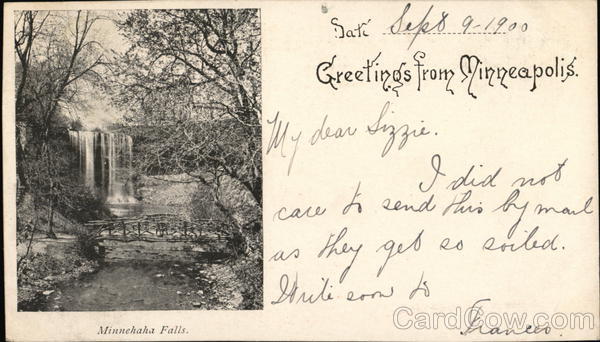 Date Sept 9-1900
Greetings from Minneapolis.
My dear Lizzie.
I did not
care to send this by mail
as they get so soiled.
Write soon to
Frances.
Minnehaha Falls.
CardCow.com